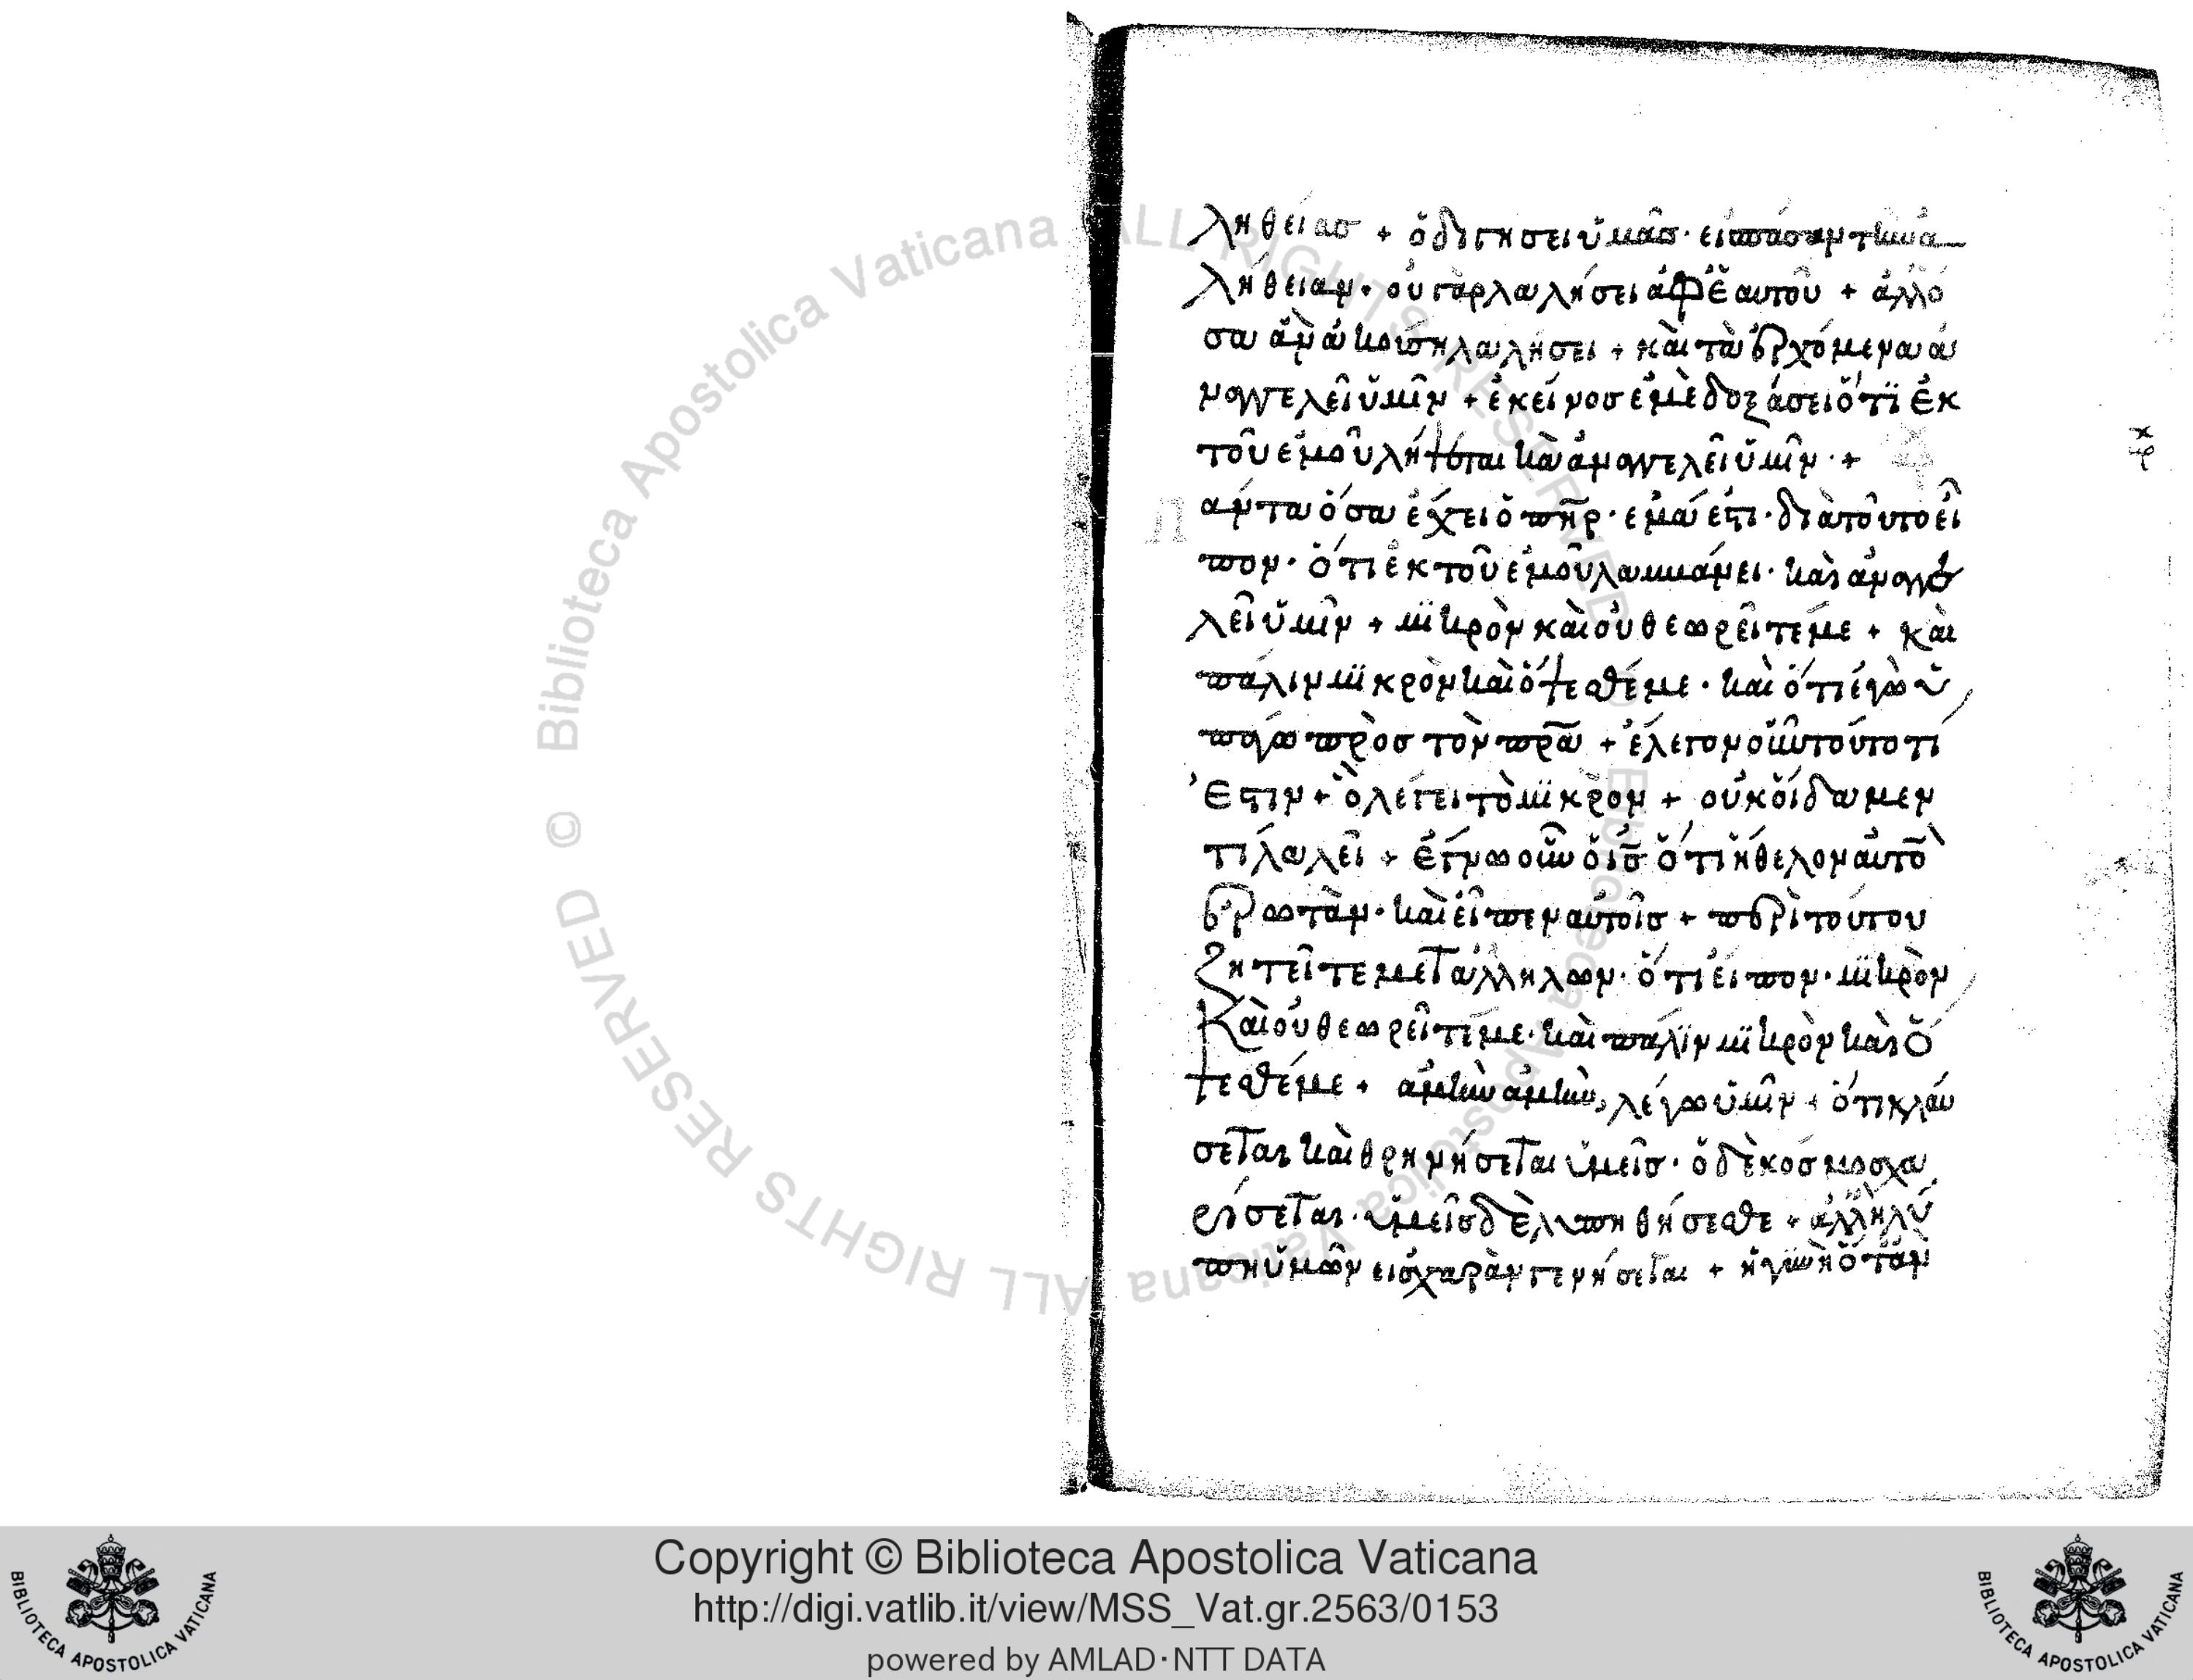 ληθείασ + ὁδιγησει ὑμᾶσ · εἰσ πάσαν τὴν ἀ
λήθειαν · οὐ γὰρ λαλήσει ἀφ ἑαυτοῦ + ἀλλ ὅ
σα ἂν ἀκούσῃ λαλήσει + καὶ τὰ ἐρχόμενα ἀ
ναγγελεῖ ὑμῖν + ἐκεῖνοσ ἐμὲ δοξάσει ὅτϊ ἐκ
τοῦ ἐμοῦ λήψεται καὶ ἀναγγελεῖ ὑμῖν · +
Πάντα ὅσα ἔχει ὁ πηρ · ἐμά ἐστι · διὰ τοῦτο εἶ
πον · ὅτι ἐκ τοῦ ἐμοῦ λαμβάνει · καὶ ἀναγγε
λεῖ ὑμῖν + μϊκρὸν καὶ οὐ θεωρεῖτέ με + καὶ
πάλιν μϊκρὸν καὶ ὄψεσθέ με · καὶ ὅτι ἐγὼ ὑ
πάγω πρὸσ τὸν πρα + ἔλεγον οὖν τοῦτο τί
ἐστιν + ὃ λέγει τὸ μϊκρὸν + οὐκ οἴδαμεν
τί λαλεῖ + ἔγνω οὖν ὁ ισ ὅτι ἤθελον αὐτὸ
ἐρωτὰν · καὶ εἶπεν αὐτοῖσ + περὶ τούτου
ζητεῖτε μετ ἀλλήλων · ὅτι εἶπον · μϊκρὸν
Καὶ οὐ θεωρεῖτέ με · καὶ πάλϊν μϊκρὸν καὶ ὄ
ψεσθέ με + ἀμὴν ἀμὴν, λέγω ὑμῖν + ὅτι κλαύ
σεται καὶ θρηνήσεται ὑμεῖσ · ὁ δὲ κόσμοσ χα
ρίσεται · ὑμεῖσ δὲ λυπηθήσεσθε + ἀλλ ἡ λύ
πη ὑμῶν εἰσ χαρὰν γενήσεται + ἡ γϋνὴ ὅταν
Copyright © Biblioteca Apostolica Vaticana
http://digi.vatlib.it/view/MSS_Vat.gr.2563/0153
powered by AMLAD·NTT DATA
BIBLIOTECA APOSTOLICA VATICANA
BIBLIOTECA APOSTOLICA VATICANA
© Biblioteca Apostolica Vaticana ALL RIGHTS RESERVED
© Biblioteca Apostolica Vaticana ALL RIGHTS RESERVED